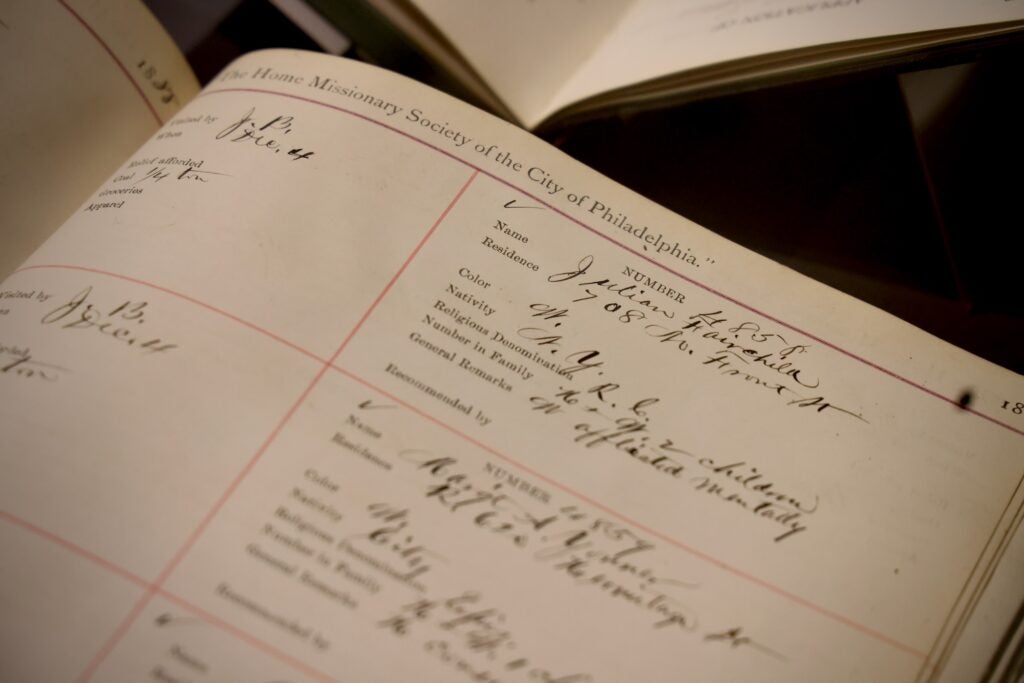 APPLICATION OF
18
The Home Missionary Society of the City of Philadelphia."
18
Visited by J. B.
When Dec. 4
Relief afforded
Coal 1/4 ton
Groceries
Apparel
Visited by J. B.
Dec. 4
ton
✓
NUMBER 4858
Name Julian Fairchild
Residence 708 N. Front St
Color W.
Nativity N. Y.
Religious Denomination R. C.
Number in Family H. W. 2 children
General Remarks W afflicted Mentally
Recommended by
✓
NUMBER 4859
Name
Residence
Color W
Nativity City
Religious Denomination
Number in Family
General Remarks
Recommended by
✓
Name